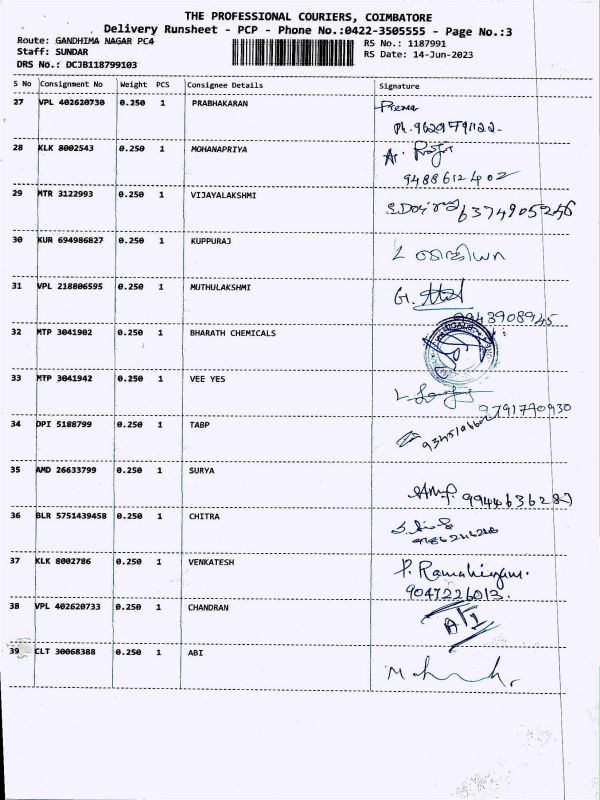 THE PROFESSIONAL COURIERS, COIMBATORE
Delivery Runsheet - PCP - Phone No.:0422-3505555 - Page No.:3
Route: GANDHIMA NAGAR PC4 RS No.: 1187991
Staff: SUNDAR RS Date: 14-Jun-2023
DRS No.: DCJB118799103
S No Consignment No Weight PCS Consignee Details Signature
27 VPL 402620730 0.250 1 PRABHAKARAN
Ph. 9629791122
28 KLK 8002543 0.250 1 MOHANAPRIYA
9488612402
29 MTR 3122993 0.250 1 VIJAYALAKSHMI
6374905246
30 KUR 694986827 0.250 1 KUPPURAJ
31 VPL 218806595 0.250 1 MUTHULAKSHMI
9943908945
32 MTP 3041902 0.250 1 BHARATH CHEMICALS
33 MTP 3041942 0.250 1 VEE YES
9791790930
34 DPI 5188799 0.250 1 TABP
35 AMD 26633799 0.250 1 SURYA
9944636283
36 BLR 5751439458 0.250 1 CHITRA
37 KLK 8002786 0.250 1 VENKATESH P. Ramalingam.
9047226013.
38 VPL 402620733 0.250 1 CHANDRAN
39 CLT 30068388 0.250 1 ABI